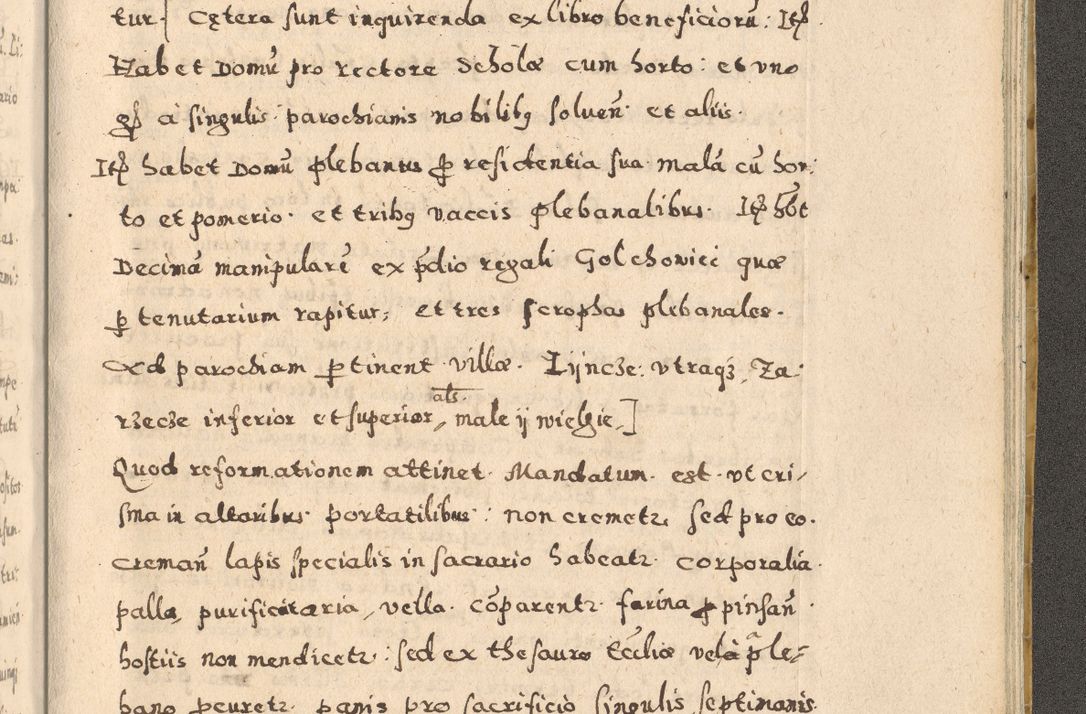 tur. Cętera sunt inquirenda ex libro beneficiorū: Itē
Habet Domū pro rectore Scholæ cum horto: et uno
gs à singulis parochianis nobilibq soluen̄ et aliis.
Itē habet Domū plebanus p residentia sua malā cū hor:
to et pomerio. et tribq vaccis plebanalibus. Itē hb̄t
Decimā manipularē ex p̄dio regali Golchowiei quæ
p tenutarium rapitur; et tres scrophas plebanales.
Ad parochiam ptinent villæ. Lijncze. utraqꝫ, Za:
rzecze inferior et superior, als male ij wielgie,]
Quod reformationem attinet. Mandatum est. ut cri/
sma in altaribus portatilibus: non cremetr, sed pro eo.
creman̄ lapis specialis in sacrario habeatr. corporalia.
palla, purificataria, vella. cōparentr. farina p pinsan̄.
hostiis non mendicetr: sed ex thesauro Eccliæ vel à ple:
bano peuretr. panis pro sacrificiò singulis septimanis